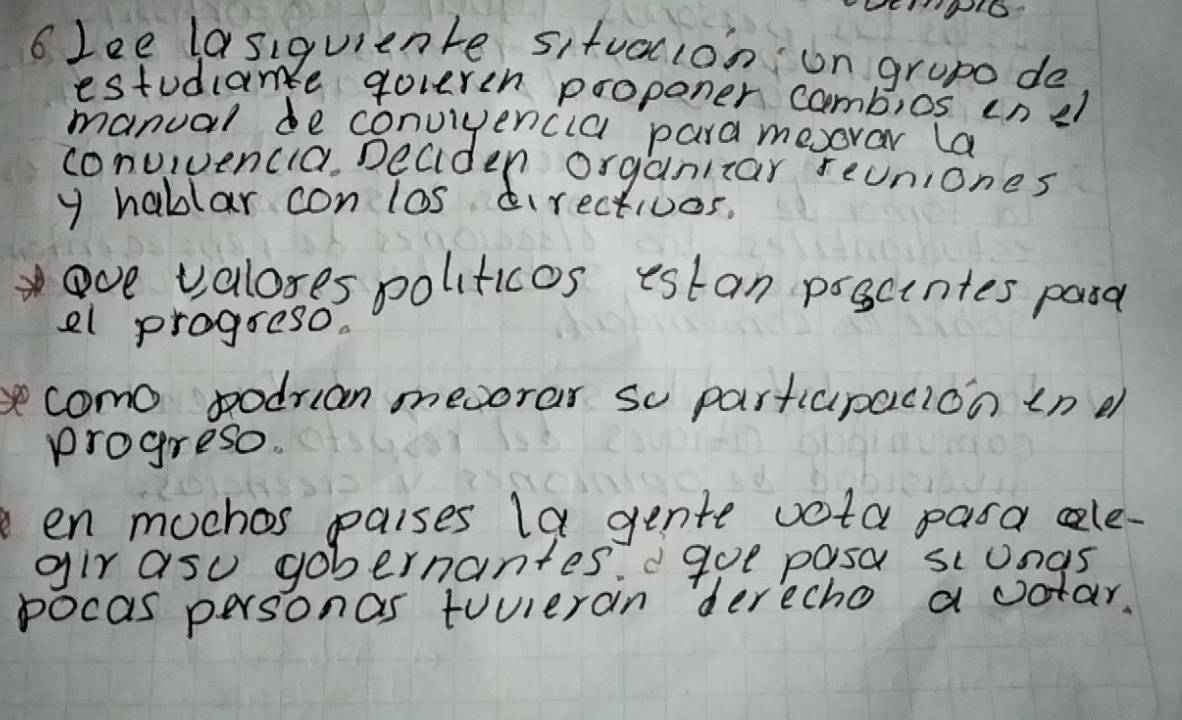 6 Lee la siguiente situación: un grupo de
estudiante quieren proponer cambios en el
manual de convivencia para mejorar la
convivencia. Deciden organizar reuniones
y hablar con los directivos.
* Que valores politicos estan prescentes para
el progreso.
* como podrian mejorar su participación en el
progreso.
* en muchos paises la gente vota para ele-
gir asu gobernantes. ¿ que pasa si unas
pocas personas tuvieran derecho a votar.